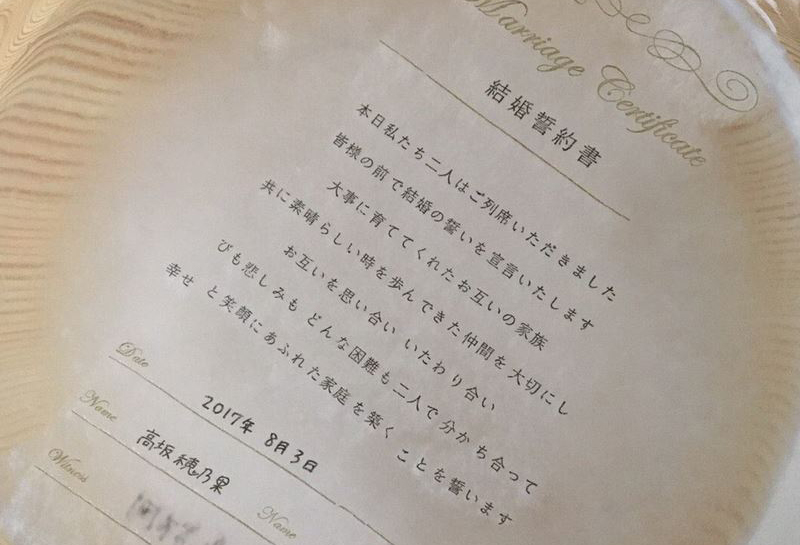 Marriage Certificate
結婚誓約書
本日私たち二人はご列席いただきました
皆様の前で結婚の誓いを宣言いたします
大事に育ててくれたお互いの家族
共に素晴らしい時を歩んできた仲間を大切にし
お互いを思い合い いたわり合い
びも悲しみも どんな困難も二人で分かち合って
幸せ と笑顔にあふれた家庭を築く ことを誓います
Date
2017年 8月3日
Name
高坂穂乃果
Name
Witness